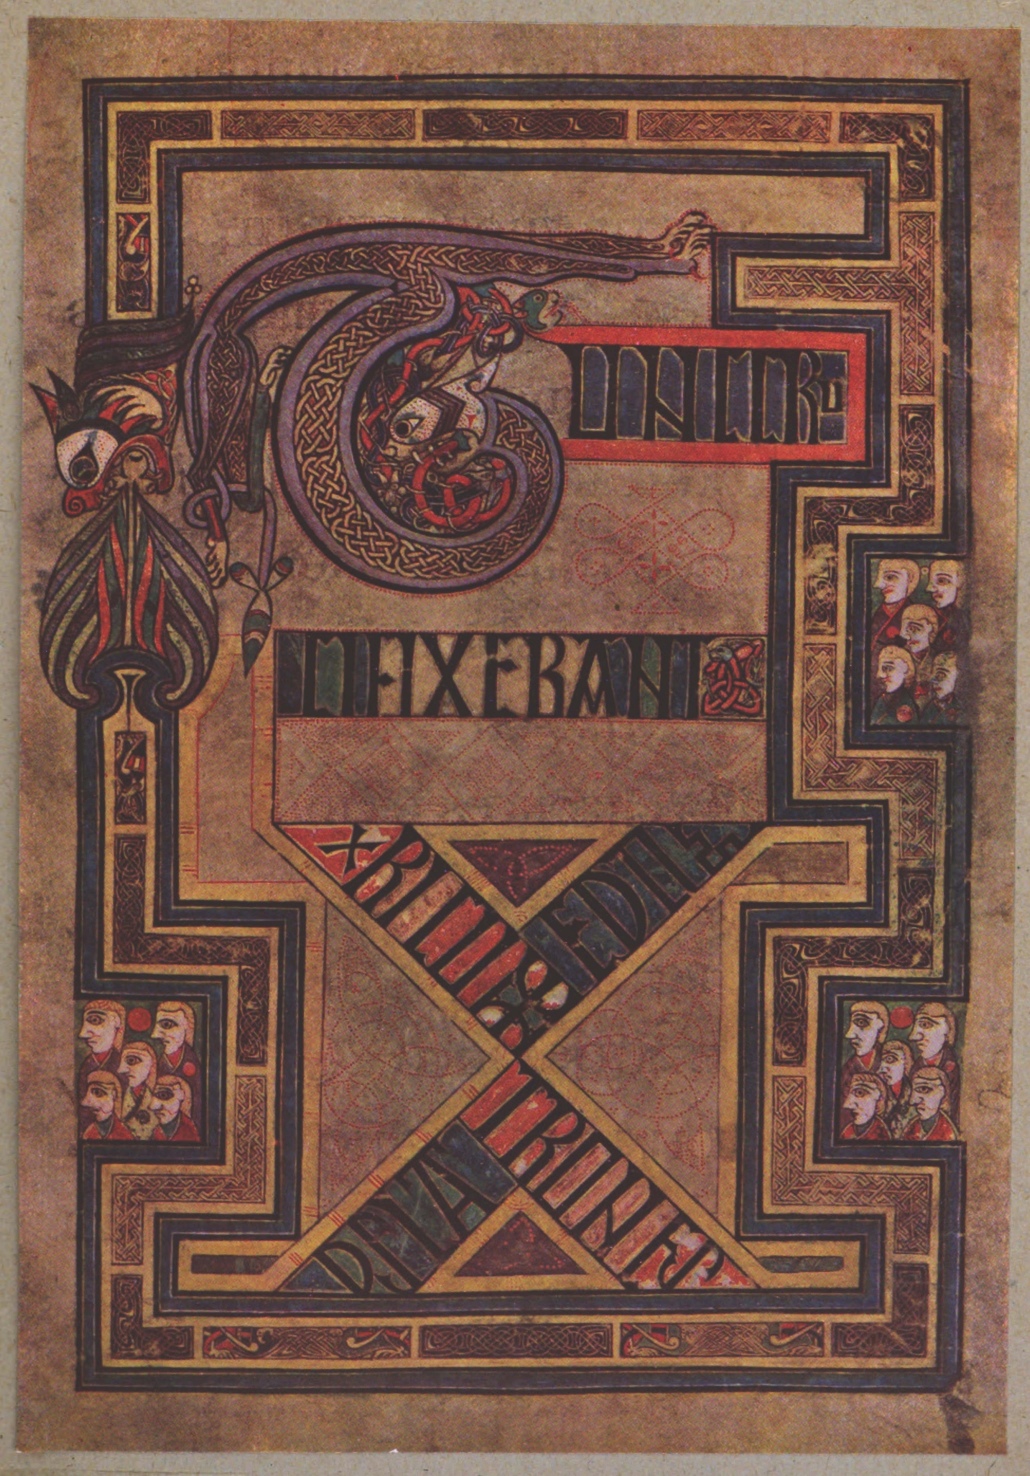 TUNC CRU
CIFIXERANT
XPI CUM EO DU
OS LA TRONES